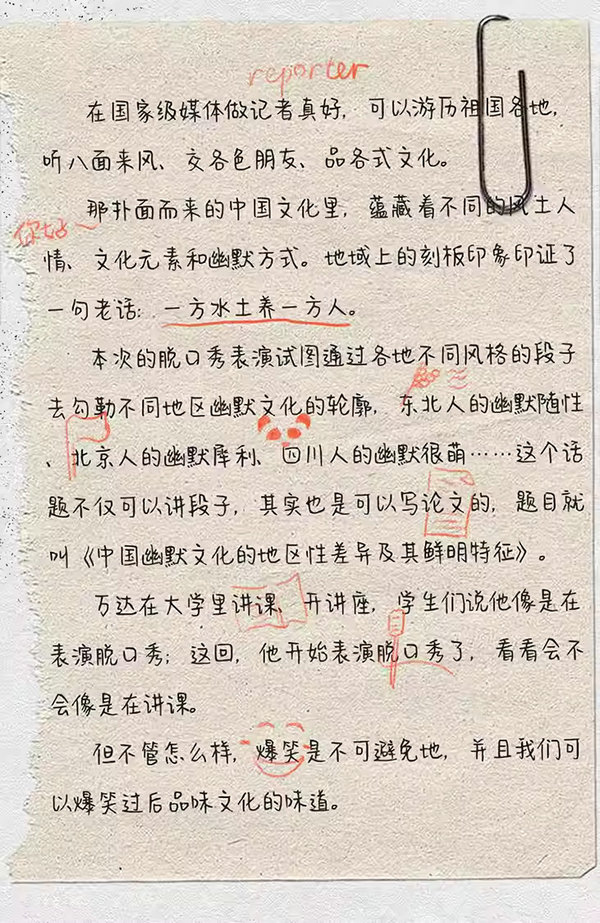 reporter
在国家级媒体做记者真好，可以游历祖国各地，
听八面来风、交各色朋友、品各式文化。
那扑面而来的中国文化里，蕴藏着不同的风土人
你好~
情、文化元素和幽默方式。地域上的刻板印象印证了
一句老话：一方水土养一方人。
本次的脱口秀表演试图通过各地不同风格的段子
去勾勒不同地区幽默文化的轮廓，东北人的幽默随性
、北京人的幽默犀利、四川人的幽默很萌……这个话
题不仅可以讲段子，其实也是可以写论文的，题目就
叫《中国幽默文化的地区性差异及其鲜明特征》。
万达在大学里讲课、开讲座，学生们说他像是在
表演脱口秀；这回，他开始表演脱口秀了，看看会不
会像是在讲课。
但不管怎么样，爆笑是不可避免地，并且我们可
以爆笑过后品味文化的味道。